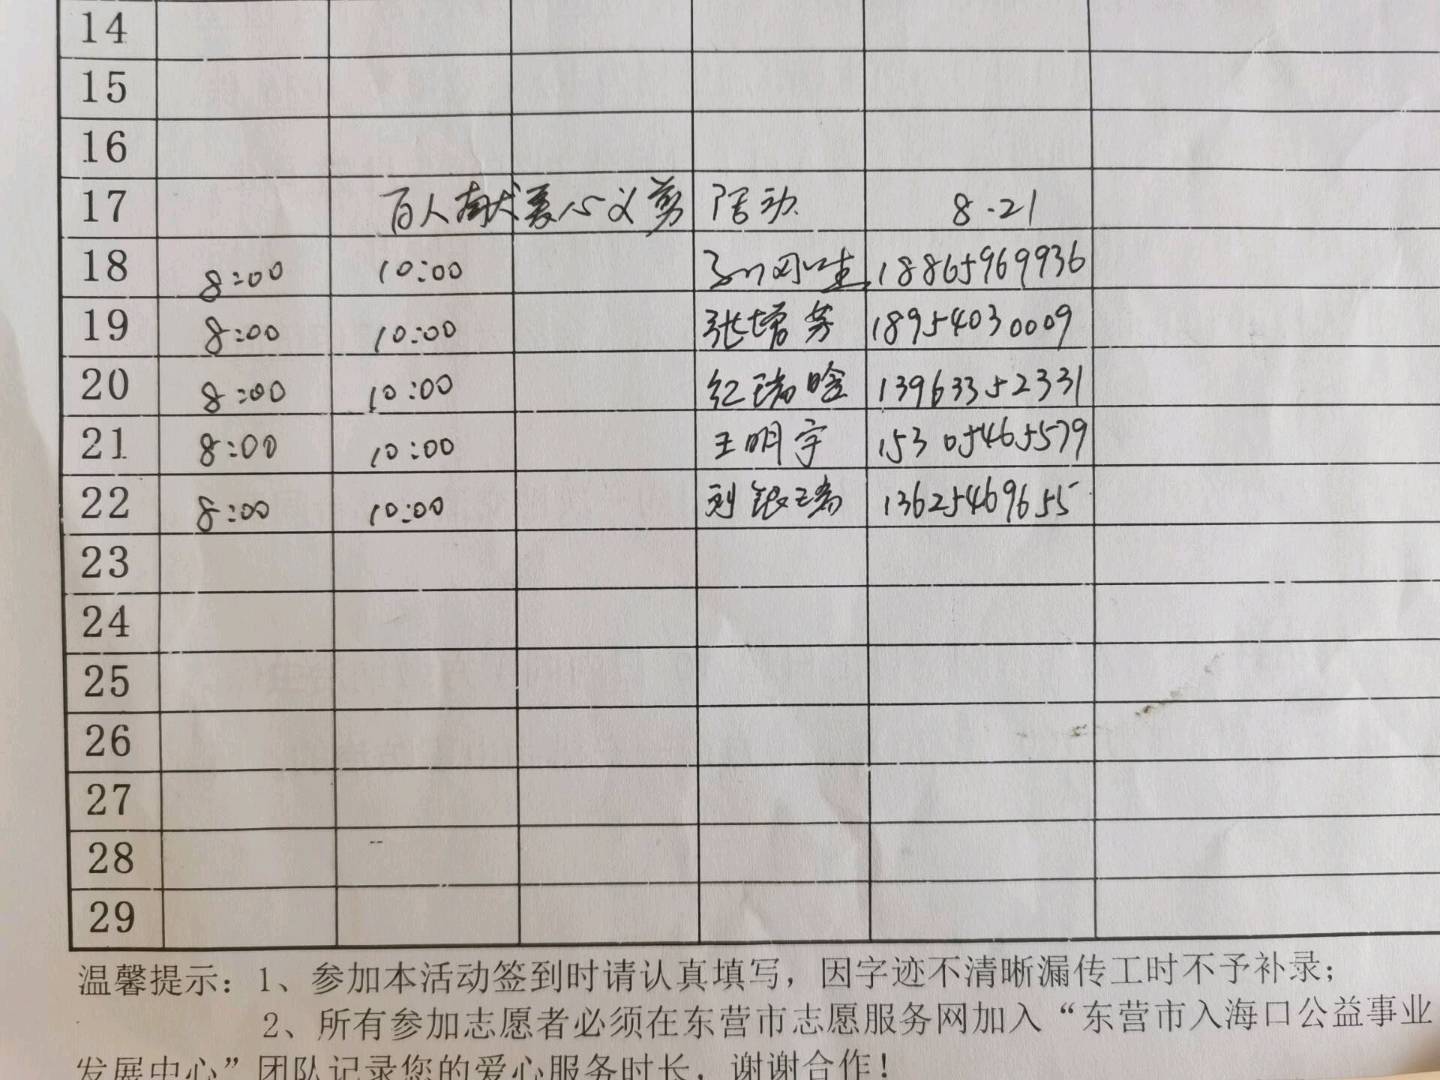 14
15
16
17 百人献爱心义剪 活动 8.21
18 8:00 10:00 18865969936
19 8:00 10:00 张增芳 18954030009
20 8:00 10:00 纪瑞晗 13963352331
21 8:00 10:00 王明宇 15305465579
22 8:00 10:00 刘银瑞 13625469655
23
24
25
26
27
28
29
温馨提示：1、参加本活动签到时请认真填写，因字迹不清晰漏传工时不予补录；
2、所有参加志愿者必须在东营市志愿服务网加入“东营市入海口公益事业
发展中心”团队记录您的爱心服务时长，谢谢合作！